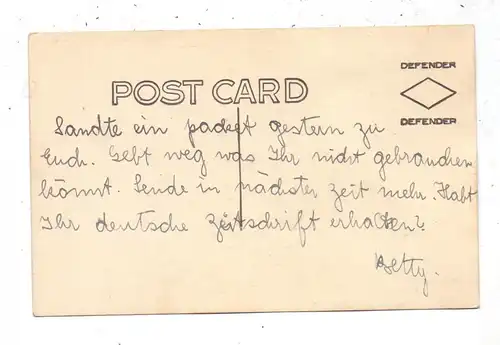 DEFENDER
POST CARD
DEFENDER
Sandte ein packet gestern zu
Euch. Gebt weg was Ihr nicht gebrauchen
könnt. Sende in nächster Zeit mehr. Habt
Ihr deutsche Zeitschrift erhalten?
Betty.